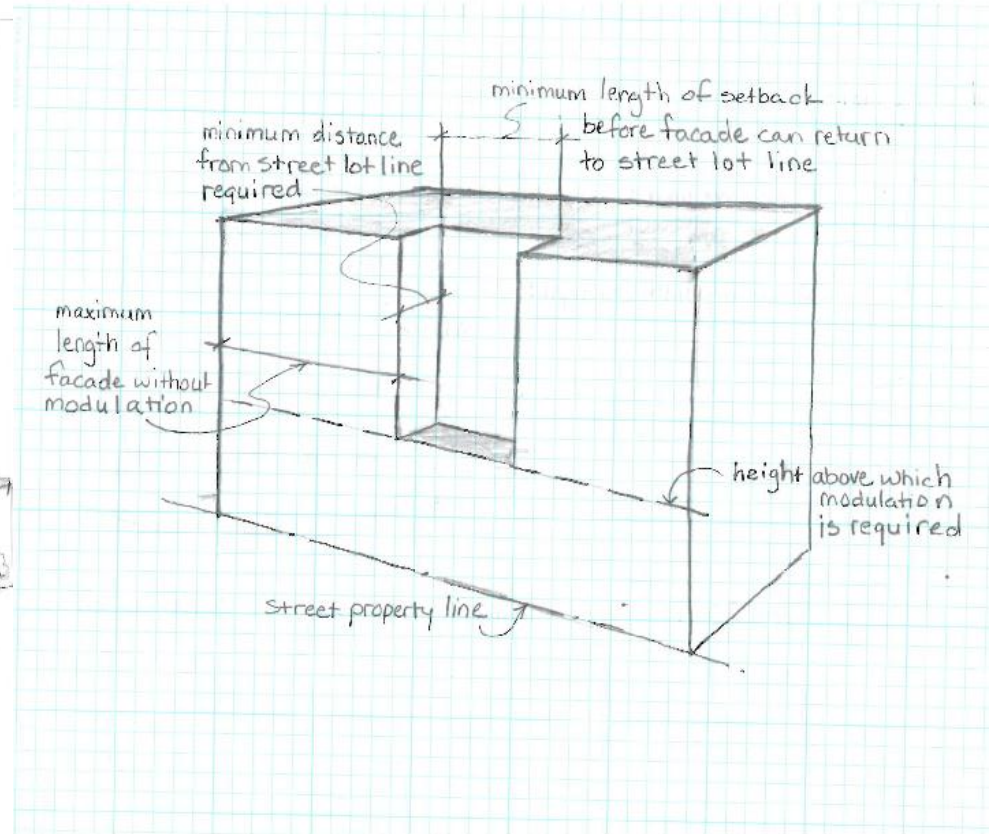 minimum length of setback
before facade can return
to street lot line
minimum distance
from street lot line
required
maximum
length of
facade without
modulation
height above which
modulation
is required
street property line